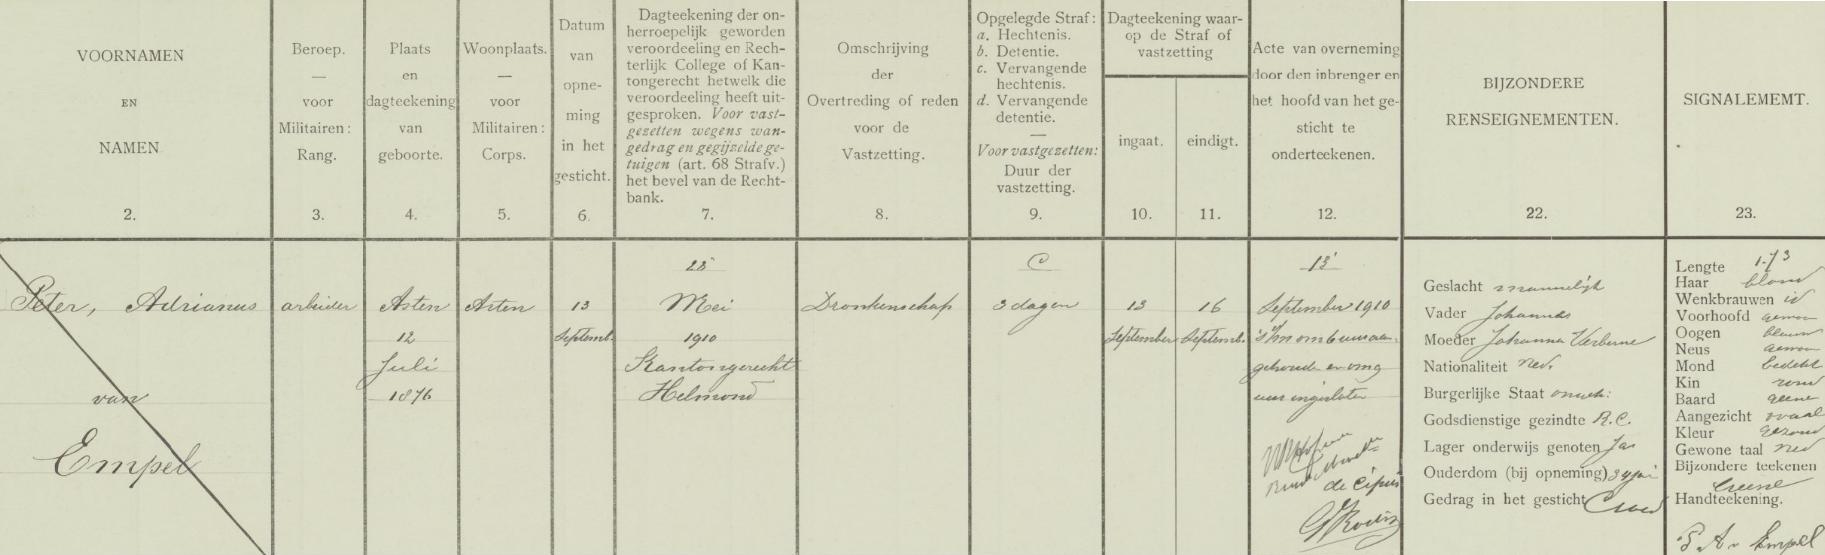 VOORNAMEN
EN
NAMEN
2.
Beroep.
—
voor
Militairen:
Rang.
3.
Plaats
en
dagteekening
van
geboorte.
4.
Woonplaats.
—
voor
Militairen:
Corps.
5.
Datum
van
opne-
ming
in het
gesticht.
6.
Dagteekening der on-
herroepelijk geworden
veroordeeling en Rech-
terlijk College of Kan-
tongerecht hetwelk die
veroordeeling heeft uit-
gesproken. Voor vast-
gezetten wegens wan-
gedrag en gegijzelde ge-
tuigen (art. 68 Strafv.)
het bevel van de Recht-
bank.
7.
Omschrijving
der
Overtreding of reden
voor de
Vastzetting.
8.
Opgelegde Straf:
a. Hechtenis.
b. Detentie.
c. Vervangende
hechtenis.
d. Vervangende
detentie.
—
Voor vastgezetten:
Duur der
vastzetting.
9.
Dagteekening waar-
op de Straf of
vastzetting
ingaat.
10.
eindigt.
11.
Acte van overneming
door den inbrenger en
het hoofd van het ge-
sticht te
onderteekenen.
12.
BIJZONDERE
RENSEIGNEMENTEN.
22.
SIGNALEMEMT.
23.
Peter, Adrianus
van
Empel
arbeider
Asten
12
Juli
1876
Asten
13
Septemb.
28
Mei
1910
Kantongerecht
Helmond
Dronkenschap
C
3 dagen
13
September
16
Septemb.
13
September 1910
uur ingesloten
de Cipier
Geslacht mannelijk
Vader Johannes
Moeder Johanna Verberne
Nationaliteit Ned.
Burgerlijke Staat ongeh:
Godsdienstige gezindte R.C.
Lager onderwijs genoten Ja
Ouderdom (bij opneming) 34 jaar
Gedrag in het gesticht Goed
Lengte 1.73
Haar blond
Wenkbrauwen id
Voorhoofd gewoon
Oogen blauw
Neus gewoon
Mond bedekt
Kin rond
Baard geene
Aangezicht ovaal
Kleur gezond
Gewone taal Ned
Bijzondere teekenen
Geene
Handteekening.
P. A. v Empel